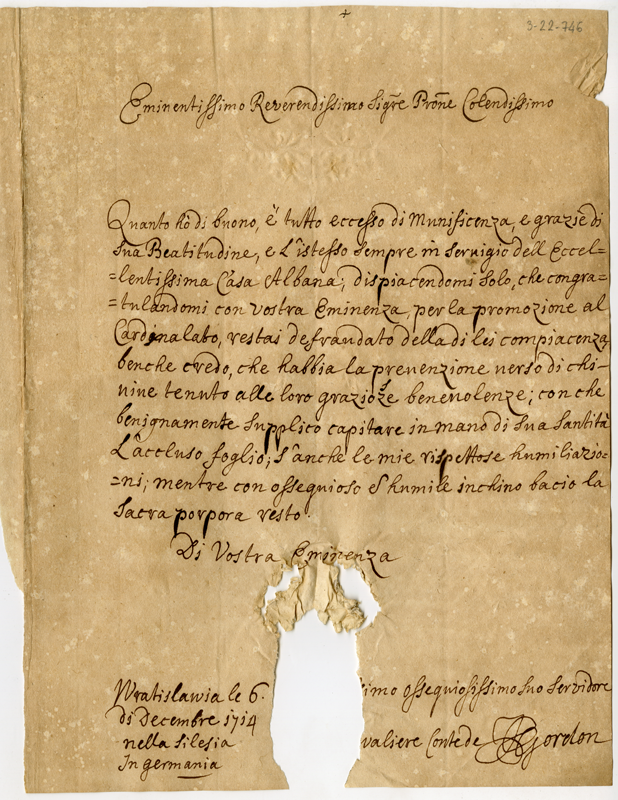 +
3-22-746
Eminentissimo Reverendissimo Sigre Prone Colendissimo
Quanto hò di buono, è tutto eccesso di Munificenza, e grazie di
Sua Beatitudine, e L'istesso sempre in servigio dell Eccel-
=lentissima Casa Albana; dispiacendomi solo, che congra=
=tulandomi con vostra Eminenza, per la promozione al
Cardinalato, restai defraudato della di lei compiacenza,
benche credo, che habbia la prevenzione verso di chi-
vive tenuto alle loro graziose benevolenze; con che
benignamente supplico capitare in mano di sua Santità
L'accluso foglio; s'anche le mie rispettose humiliazio=
=ni; mentre con ossequioso & humile inchino bacio la
Sacra porpora resto.
Di Vostra Eminenza
Wratislawia le 6.
di Decembre 1714
nella Silesia
In germania
simo ossequiosissimo suo servidore
valiere Conte de Gordon